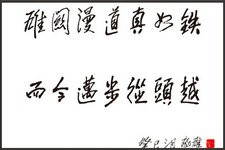 雄關漫道真如鐵
而今邁步從頭越
癸巳